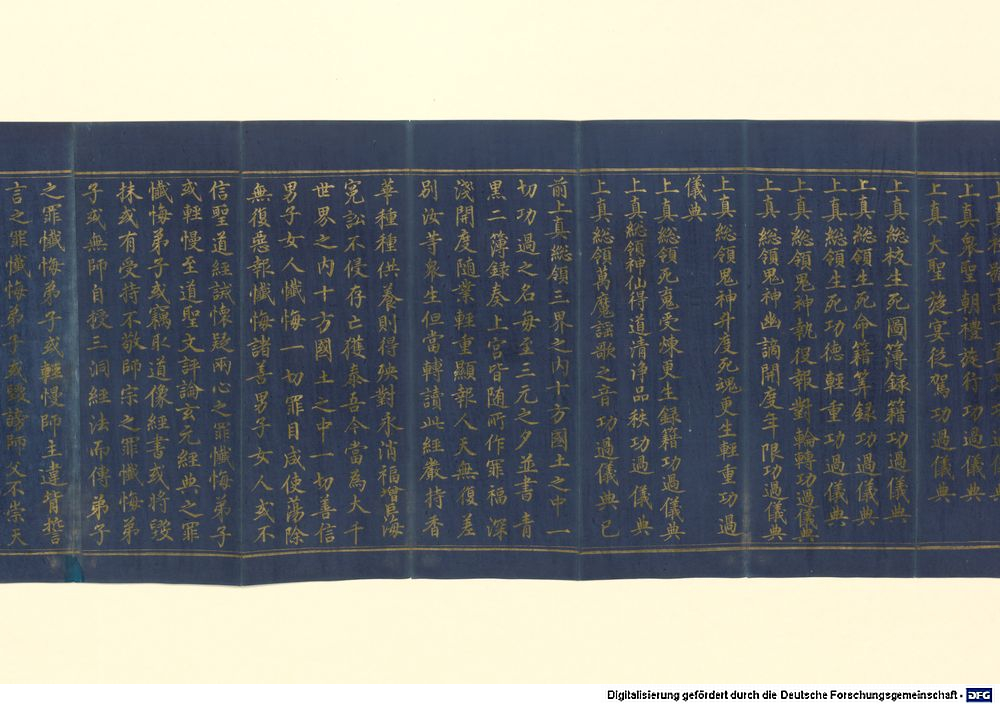 上真衆聖朝禮旋行功過儀典
上真大聖旋宴從駕功過儀典
上真總校生死圖簿録籍功過儀典
上真總領生死命籍筭録功過儀典
上真總領生死功德輕重功過儀典
上真總領鬼神執役報對輪轉功過儀典
上真總領鬼神幽謫開度年限功過儀典
上真總領鬼神升度死魂更生輕重功過
儀典
上真總領死魂受煉更生録籍功過儀典
上真總領神仙得道清浄品秩功過儀典
上真總領萬魔謡歌之音功過儀典已
前上真総領三界之内十方國土之中一
切功過之名每至三元之夕並書青
黒二簿録奏上宫皆随所作罪福深
淺開度随業輕重顯報人天無復差
别汝等衆生但當轉讀此經嚴持香
華種種供養則得殃對永消福增巨海
寃訟不侵存亡獲泰吾今當為大千
世界之内十方國土之中一切善信
男子女人懺悔一切罪目咸使蕩除
無復惡報懺悔諸善男子女人或不
信聖道經誡懷疑兩心之罪懺悔弟子
或輕慢至道聖文評論玄元經典之罪
懺悔弟子或竊取道像經書或將毀
抹或有受持不敬師宗之罪懺悔弟
子或無師自授三洞經法而傳弟子
之罪懺悔弟子或輕慢師主違背誓
言之罪懺悔弟子或毀謗師父不崇天
Digitalisierung gefördert durch die Deutsche Forschungsgemeinschaft - DFG